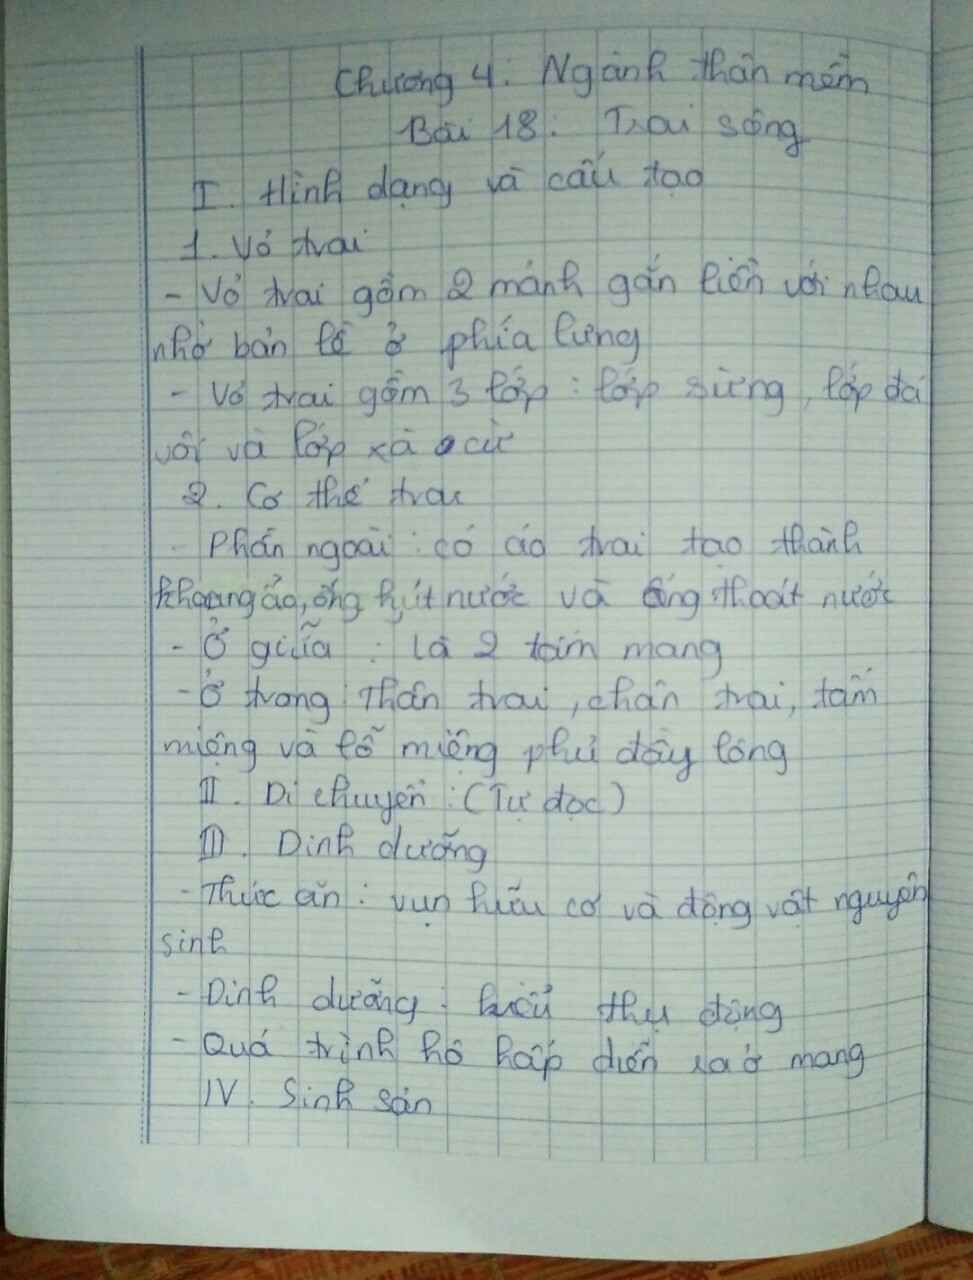 Chương 4: Ngành thân mềm
Bài 18: Trai sông
I. Hình dạng và cấu tạo
1. Vỏ trai
- Vỏ trai gồm 2 mảnh gắn liền với nhau
nhờ bản lề ở phía lưng
- Vỏ trai gồm 3 lớp: lớp sừng, lớp đá
vôi và lớp xà cừ
2. Cơ thể trai
- Phần ngoài: có áo trai tạo thành
khoang áo, ống hút nước và ống thoát nước
- Ở giữa: là 2 tấm mang
- Ở trong: Thân trai, chân trai, tấm
miệng và lỗ miệng phủ đầy lông
II. Di chuyển: (Tự đọc)
III. Dinh dưỡng
- Thức ăn: vụn hữu cơ và động vật nguyên
sinh
- Dinh dưỡng: kiểu thụ động
- Quá trình hô hấp diễn ra ở mang
IV. Sinh sản